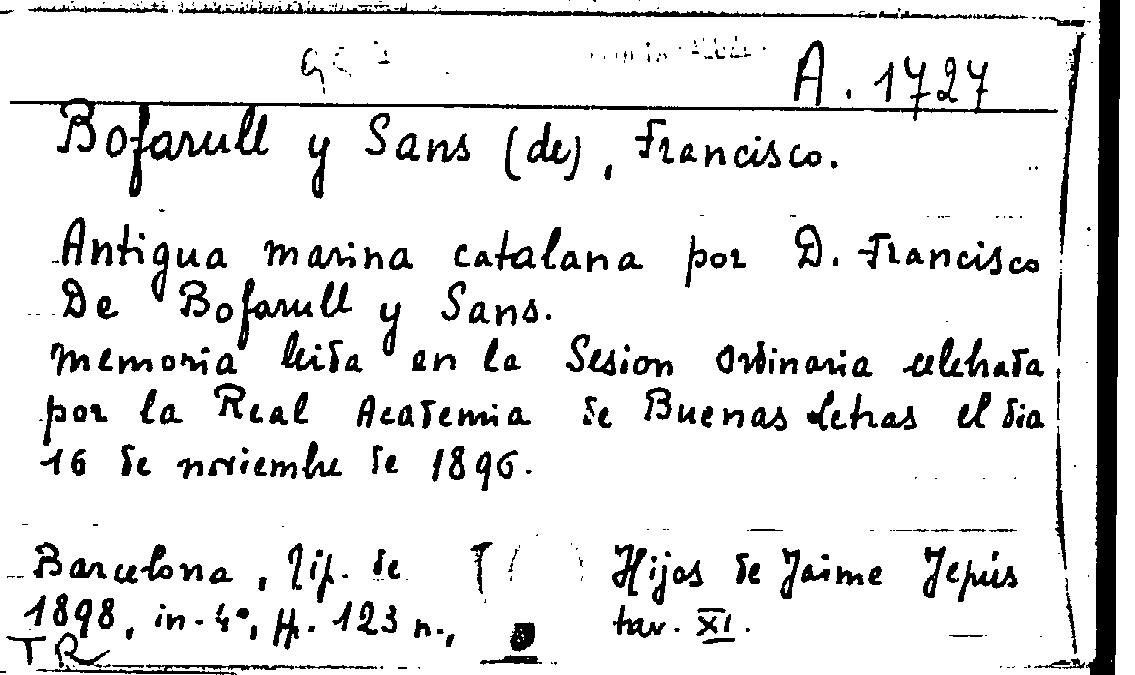 A. 1727
Bofarull y Sans (de), Francisco.
Antigua marina catalana por D. Francisco
De Bofarull y Sans.
Memoria leida en la Sesion Ordinaria celebrada
por la Real Academia de Buenas Letras el dia
16 de noviembre de 1896.
Barcelona, Tip. de Hijos de Jaime Jepús
1898, in-4°, pp. 123 n., tav. XI.
TR